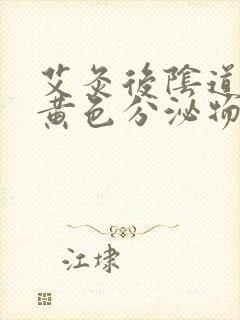 艾灸後陰道
黃色分泌物
江埭